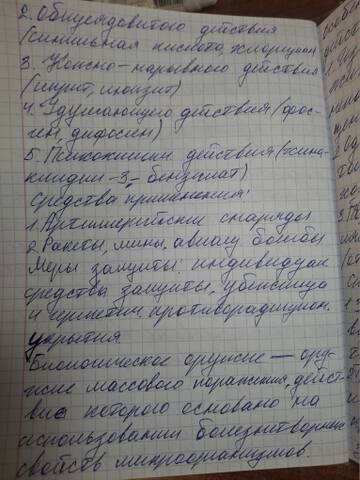 2. Общеядовитого действия
(синильная кислота, хлорциан
3. Кожно-нарывного действия
(иприт, люизит)
4. Удушающего действия (фос-
ген, дифосген)
5. Психохимич. действия (хина-
клидин-3-бензилат)
Средства применения:
1. Артиллерийские снаряды
2. Ракеты, мины, авиац бомбы
Меры защиты: индивидуал
средства защиты, убежища
и герметич. противорадицион.
укрытия.
Биологическое оружие — ору-
жие массового поражения, дейст-
вие которого основано на
использовании болезнетворных
свойств микроорганизмов.